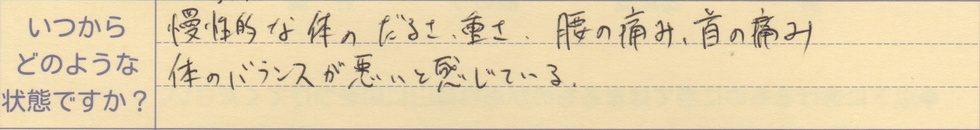 いつから
どのような
状態ですか？
慢性的な体のだるさ、重さ、腰の痛み、首の痛み
体のバランスが悪いと感じている。